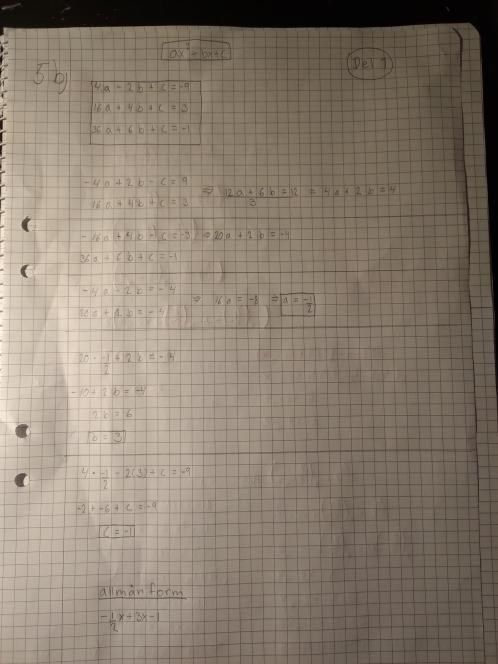 ax² + bx + c
Del 1
5 b)
4a - 2b + c = -9
16a + 4b + c = 3
36a + 6b + c = -1
-4a + 2b - c = 9
16a + 4b + c = 3 ⇒ 12a + 6b = 12 = 4a + 2b = 4
3
-16a + 4b - c = -3 ⇒ 20a + 2b = -4
36a + 6b + c = -1
-4a - 2b = -4
20a + 2b = -4 ⇒ 16a = -8 ⇒ a = -1/2
20 · -1/2 + 2b = -4
-10 + 2b = -4
2b = 6
b = 3
4 · -1/2 - 2(3) + c = -9
-2 + -6 + c = -9
c = -1
allmän form
-1/2x + 3x - 1